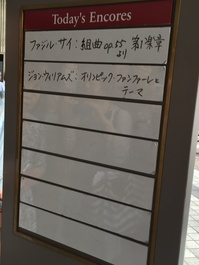 Today's Encores
ファジル・サイ：組曲op.55より 第1楽章
ジョン・ウィリアムズ：オリンピック・ファンファーレと
テーマ